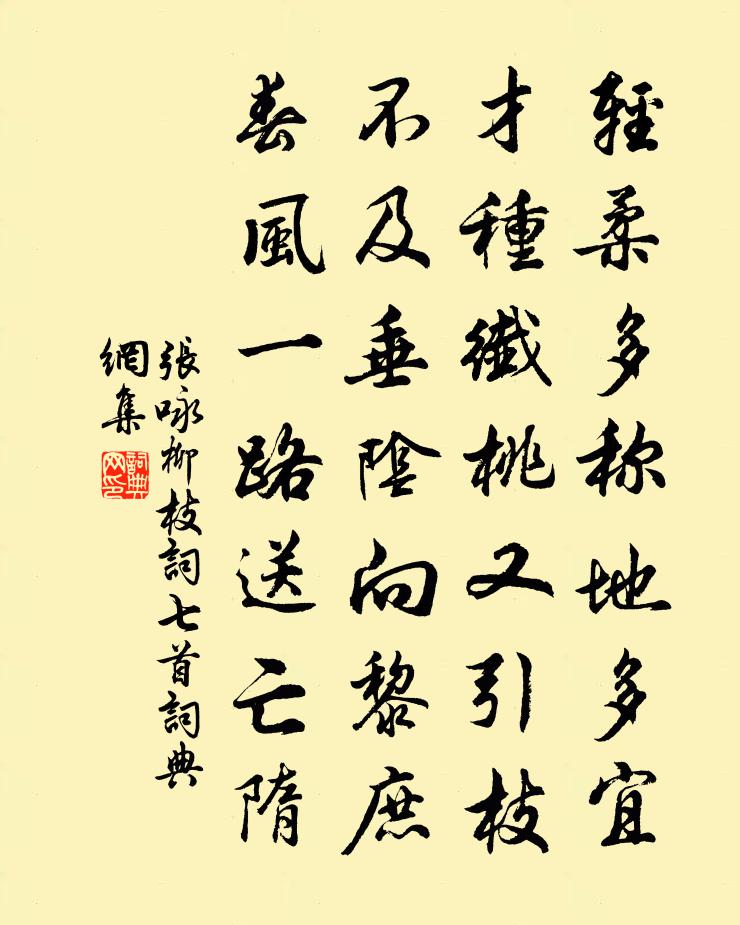 輕柔多称地多宜
才種纖桃又引枝
不及垂陰向黎庶
春風一路送亡隋
張咏柳枝詞七首詞典
網集
詞典網印